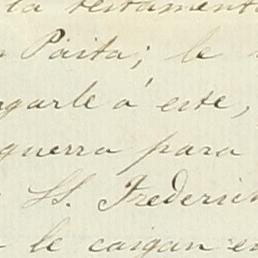 la testament
Paita; le
garle á este,
guerra para
SS. Frederic
le caigan en